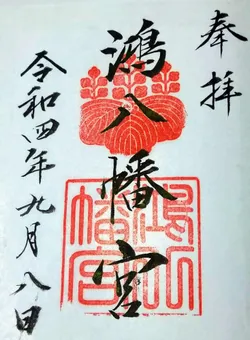 奉拝
鴻八幡宮
鴻八幡宮
令和四年九月八日